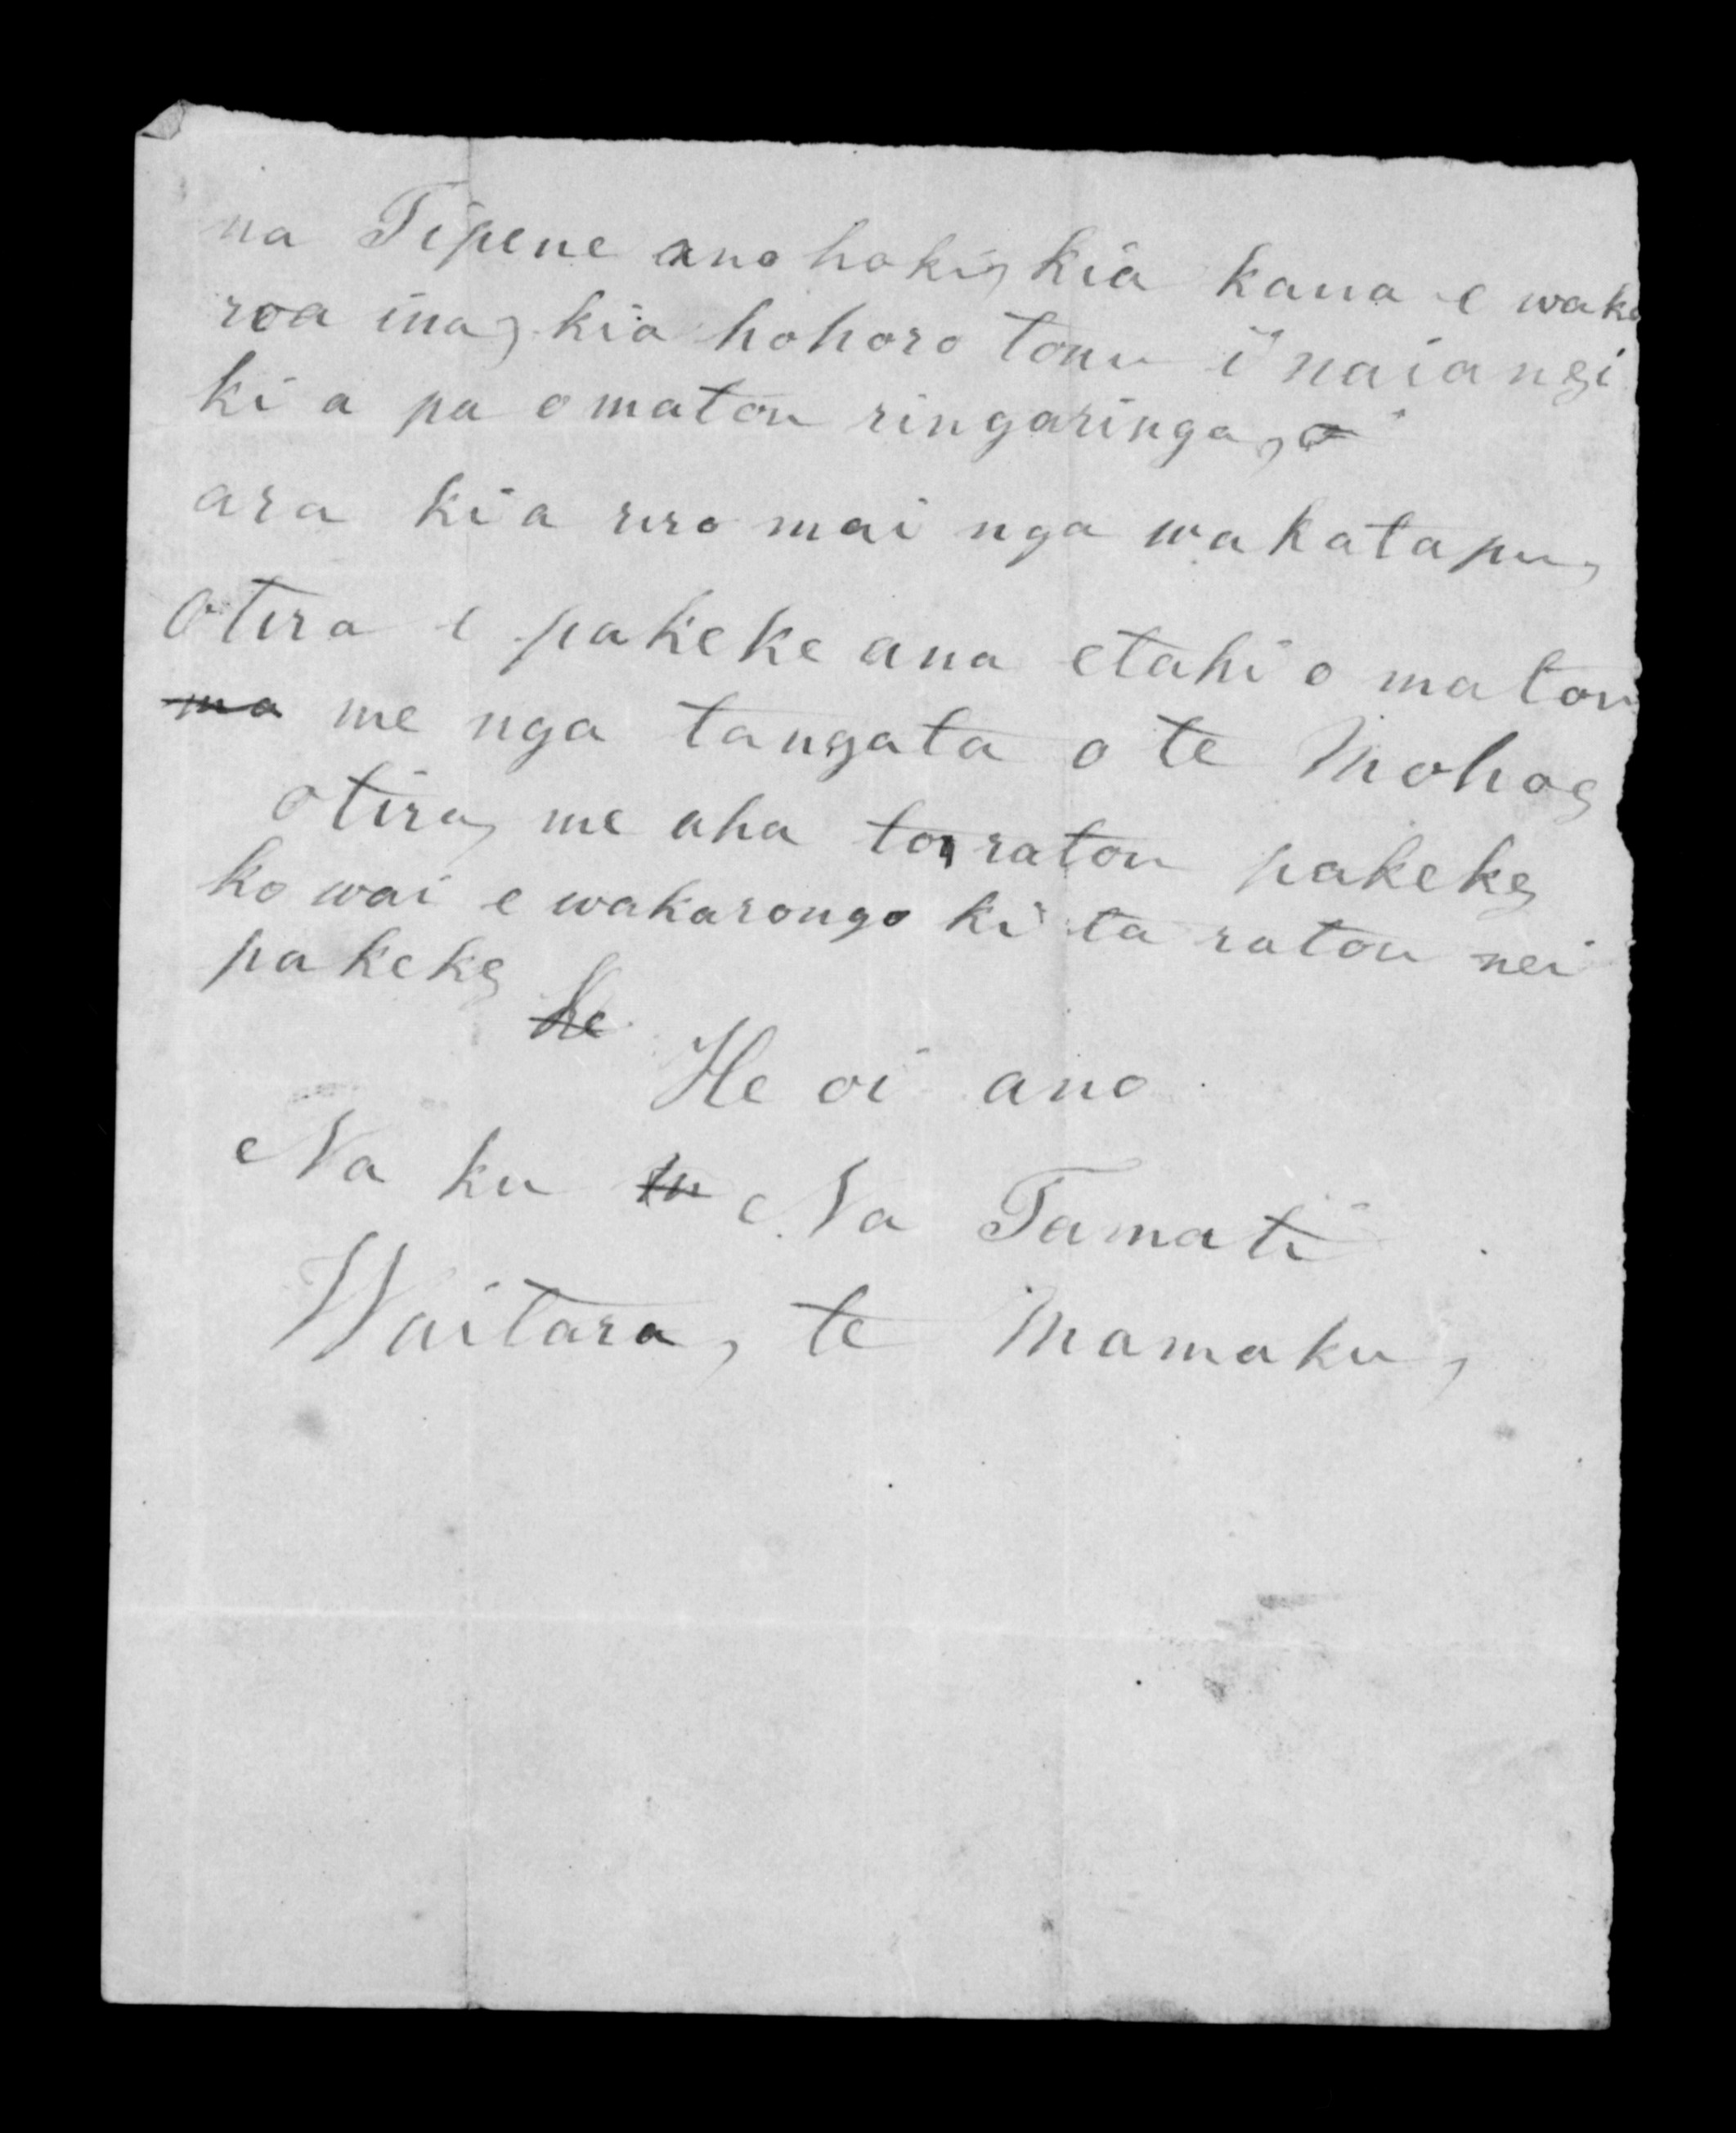 na Tipene ano hoki, kia kaua e waka
roa ina, kia hohoro tonu i naianei
ki a pa o matou ringaringa,
ara kia riro mai nga wakatapu,
otira e pakeke ana etahi o matou
ma me nga tangata o te Mohoe,
otira, me aha to ratou pakeke,
ko wai e wakarongo ki ta ratou nei
pakeke,
he
He oi ano
Na ku Na Tamati
Waitara, te Mamaku,